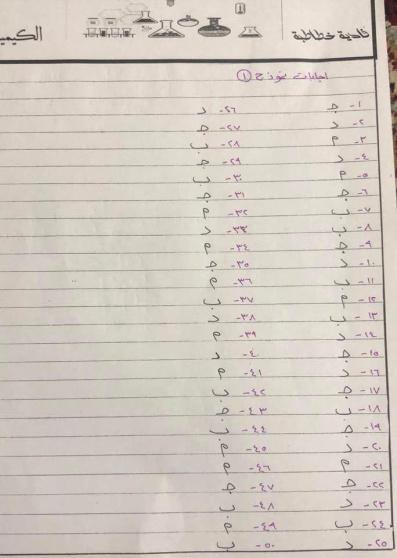 فادية خطاطبة
الكيمي
اجابات نموذج ①
١- ج
٢- د
٣- م
٤- د
٥- م
٦- ج
٧- ب
٨- ب
٩- ج
١٠- د
١١- ب
١٢- م
١٣- ب
١٤- د
١٥- ج
١٦- د
١٧- ج
١٨- ب
١٩- ج
٢٠- د
٢١- م
٢٢- ج
٢٣- د
٢٤- ب
٢٥- د
٢٦- د
٢٧- ج
٢٨- ب
٢٩- ج
٣٠- ب
٣١- ج
٣٢- م
٣٣- د
٣٤- م
٣٥- ج
٣٦- م
٣٧- ب
٣٨- د
٣٩- م
٤٠- د
٤١- م
٤٢- ب
٤٣- ج
٤٤- ب
٤٥- م
٤٦- م
٤٧- ج
٤٨- ب
٤٩- م
٥٠- ب